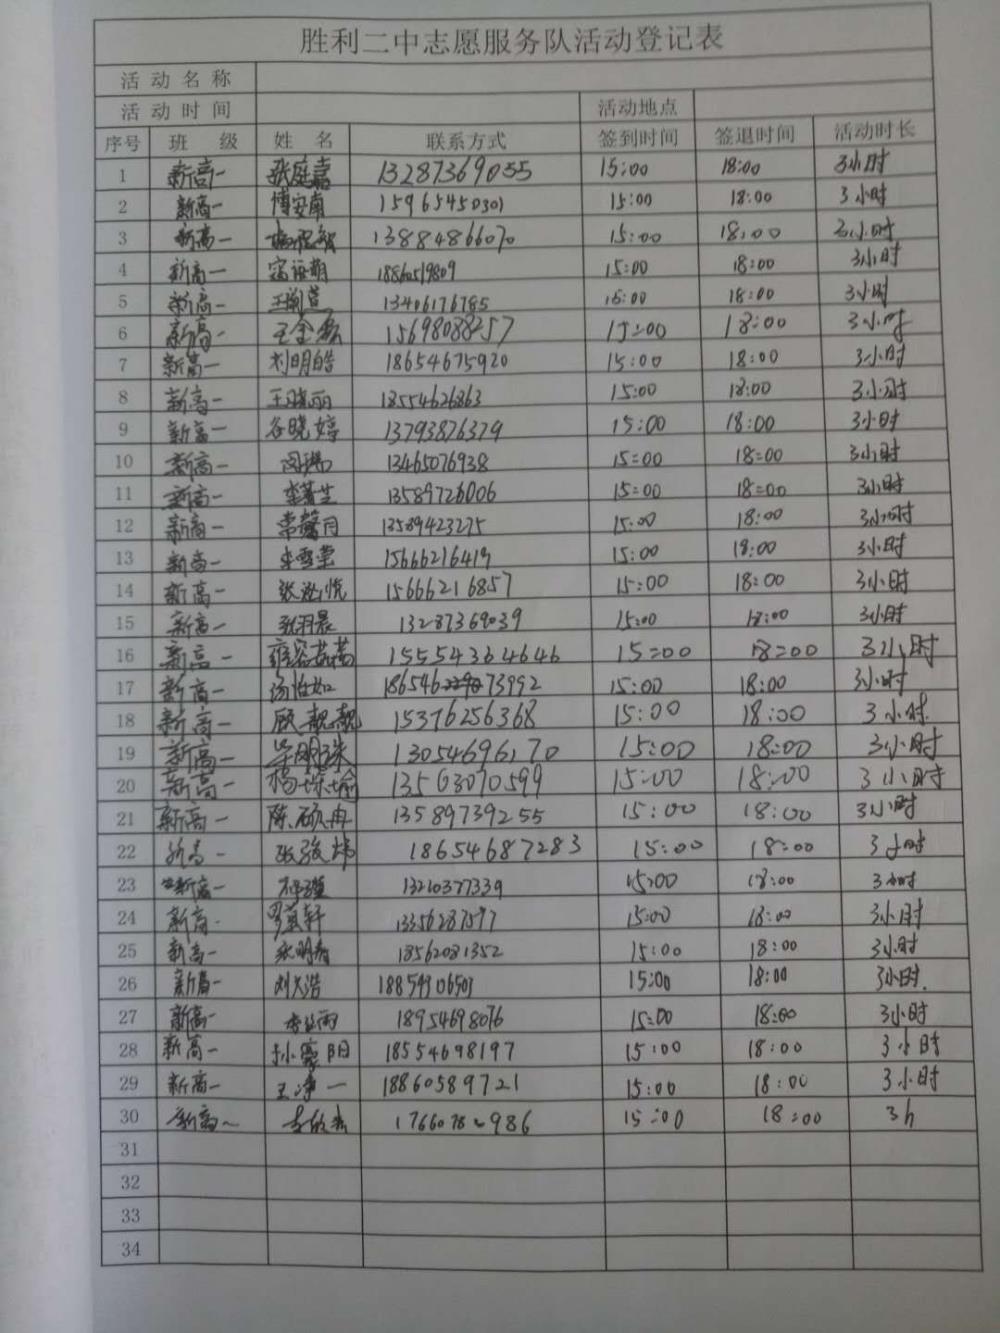 胜利二中志愿服务队活动登记表
活动名称
活动时间 活动地点
序号 班 级 姓 名 联系方式 签到时间 签退时间 活动时长
1 新高一 张庭嘉 13287369055 15:00 18:00 3小时
2 新高一 博安南 15965450301 15:00 18:00 3小时
3 新高一 13884866070 15:00 18:00 3小时
4 新高一 18860519809 15:00 18:00 3小时
5 新高一 13406176785 15:00 18:00 3小时
6 新高一 15698088257 15:00 18:00 3小时
7 新高一 刘明皓 18654675920 15:00 18:00 3小时
8 新高一 王晓丽 18554626863 15:00 18:00 3小时
9 新高一 谷晓婷 13793876379 15:00 18:00 3小时
10 新高一 13465076938 15:00 18:00 3小时
11 新高一 13589726006 15:00 18:00 3小时
12 新高一 常馨月 13589423275 15:00 18:00 3小时
13 新高一 15666216419 15:00 18:00 3小时
14 新高一 15666216857 15:00 18:00 3小时
15 新高一 张羽晨 13287369039 15:00 18:00 3小时
16 新高一 15554364646 15:00 18:00 3小时
17 新高一 汤怡如 15:00 18:00 3小时
18 新高一 顾靓靓 15376256368 15:00 18:00 3小时
19 新高一 毕明珠 13054696170 15:00 18:00 3小时
20 新高一 13563070599 15:00 18:00 3小时
21 新高一 陈硕冉 13589739255 15:00 18:00 3小时
22 新高一 张骏炜 18654687283 15:00 18:00 3小时
23 新高一 13210377339 15:00 18:00 3小时
24 新高 13356287597 15:00 18:00 3小时
25 新高一 18562081352 15:00 18:00 3小时
26 新高一 15:00 18:00 3小时
27 新高一 18954698076 15:00 18:00 3小时
28 新高一 孙豪阳 18554698197 15:00 18:00 3小时
29 新高一 王净一 18860589721 15:00 18:00 3小时
30 新高一 15:00 18:00 3h
31
32
33
34